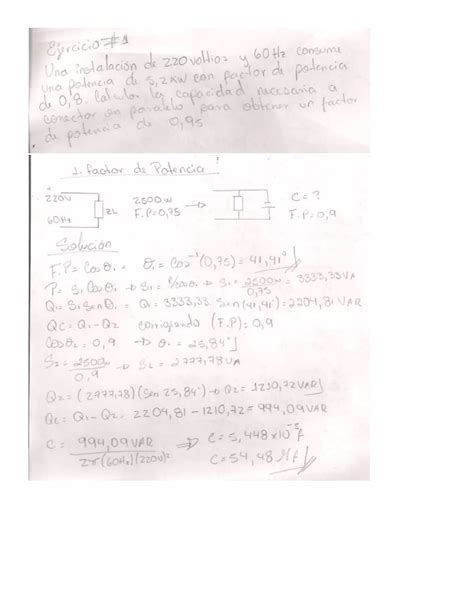 Ejercicio #1
Una instalación de 220 voltios y 60 Hz consume
una potencia de 5,2 kW con factor de potencia
de 0,8. Calcular la capacidad necesaria a
conectar en paralelo para obtener un factor
de potencia de 0,95
1. factor de Potencia
220V 2500w C = ?
60Hz ZL F.P=0,75 F.P=0,9
Solución
F.P= Cosθ1 = θ1= Cos⁻¹(0,75) = 41,41°
P= S1 Cosθ1 → S1= P/cosθ1 → S1= 2500w/0,75 = 3333,33VA
Q1= S1 Senθ1 = Q1= 3333,33. Sen(41,41°)=2204,81 VAR
QC= Q1-Q2 corrigiendo (F.P)=0,9
Cosθ2=0,9 → θ1=25,84°
S2= 2500w/0,9 → S2= 2777,78VA
Q2=(2777,78)(Sen 25,84°)→ Q2= 1210,72VAR
QC= Q1-Q2= 2204,81-1210,72=994,09VAR
C= 994,09VAR/2π(60Hz)(220V)² ⇒ C=5,448x10⁻⁵f
C=54,48 μf